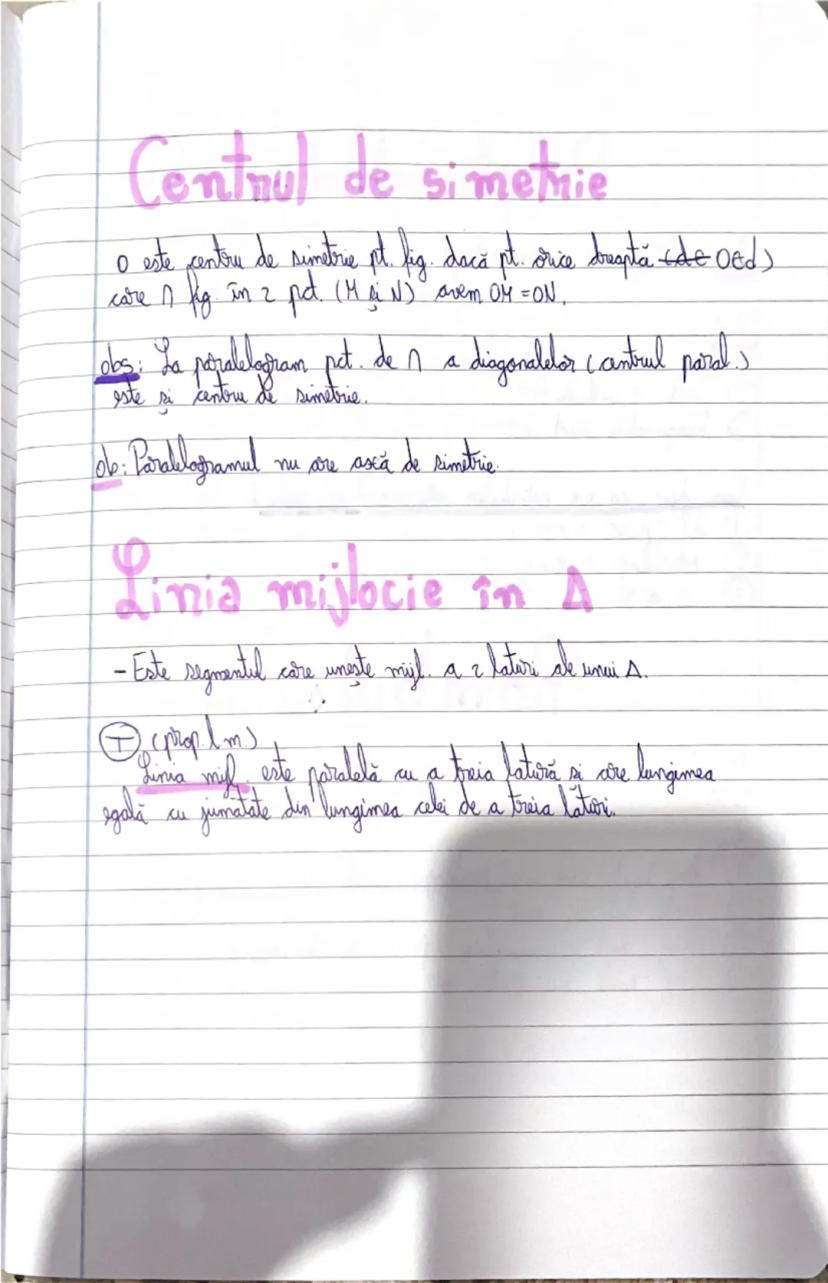 Centrul de simetrie
O este centru de simetrie pt. fig. dacă pt. orice dreaptă (d∈ O∈d)
care ∩ fig. în 2 pct. (M și N) avem OM = ON.
obs: La paralelogram pct. de ∩ a diagonalelor (centrul paral.)
este și centru de simetrie.
ob: Paralelogramul nu are axă de simetrie.
Linia mijlocie în Δ
- Este segmentul care unește mijl. a 2 laturi ale unui Δ.
T (prop. l.m.)
Linia mijl. este paralelă cu a treia latură și are lungimea
egală cu jumătate din lungimea celei de a treia laturi.